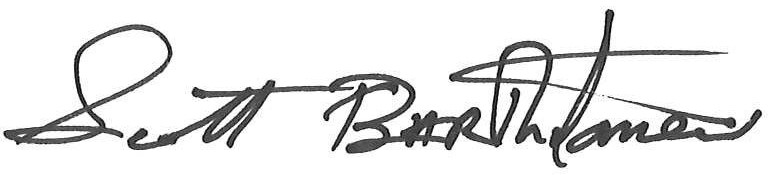 Scott Bartholomew